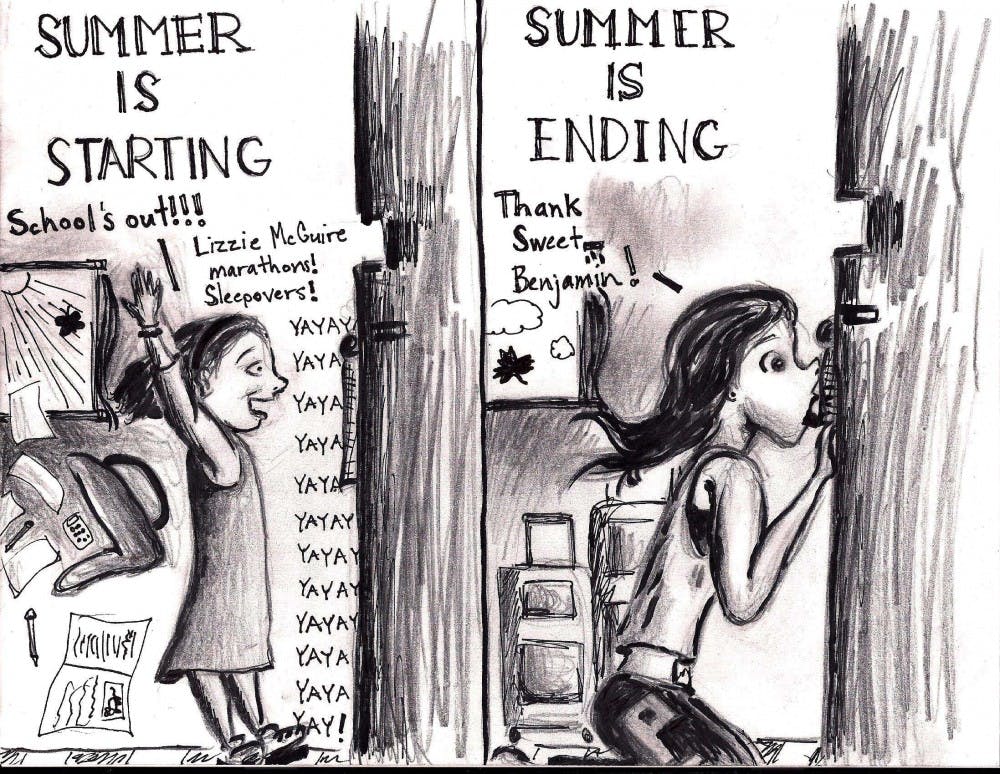 SUMMER
IS
STARTING
School's out!!!
Lizzie McGuire
marathons!
Sleepovers!
YAYAY
YAYA
YAYA
YAYA
YAYA
YAYAY
YAYAY
YAYAY
YAYAY
YAYA
YAYA
YAY!
SUMMER
IS
ENDING
Thank
Sweet
Benjamin!